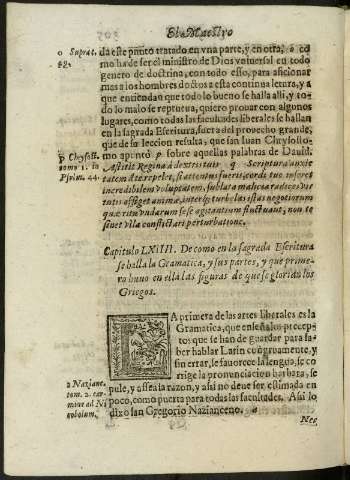 El Maestro
o Suprat. da este punto tratado en vna parte, y en otra, o co
mo ha de ser el ministro de Dios vniuersal en todo
genero de doctrina, con todo esso, para aficionar
mas a los hombres doctos a esta continua letura, y a
que entiendan que todo lo bueno se halla alli, y to-
do lo malo se reprueua, quiero prouar con algunos
lugares, como todas las facultades liberales se hallan
en la sagrada Escritura, fuera del prouecho grande,
que de su leccion resulta, que san Iuan Chrysosto-
p Chrysost. mo apuntò p sobre aquellas palabras de Dauid.
tomo 1. in Astitit Regina à dextris tuis
Psalm. 44. tatem deterrpset, si attentus fueris, cordi tuo inseret
incredibilem voluptatem, sublata malitiæ radices, vir
tutis
quæ ritu vndarum se se agitantium fluctuant, non te
sinet villa conflictari perturbatione.
Capitulo LXIIII. De como en la sagrada Escritura
se halla la Gramatica, y sus partes, y que prime-
ro huuo en ella las figuras de que se glorian los
Griegos.
LA primera de las artes liberales es la
Gramatica, que enseña los precep-
tos que se han de guardar para sa-
ber hablar Latin congruamente, y
sin errar, se fauorece la lengua, se co
rrige la pronunciacion barbara, se
pule, y assea la razon, y assi no deue ser estimada en
poco, como puerta para todas las facultades. Assi lo
dixo san Gregorio Nazianceno. a
a Nazianc.
tom. 2. car-
mine ad Ni
cobolum.
Ner